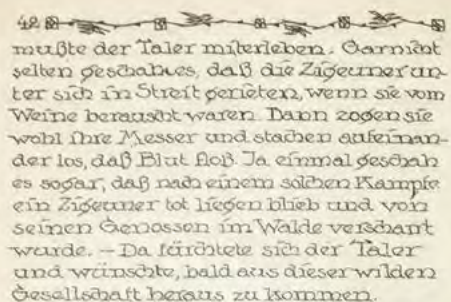 42
mußte der Taler miterleben. Garnicht
selten geschah es, daß die Zigeuner un-
ter sich in Streit gerieten, wenn sie vom
Weine berauscht waren. Dann zogen sie
wohl ihre Messer und stachen aufeinan-
der los, daß Blut floß. Ja einmal geschah
es sogar, daß nach einem solchen Kampfe
ein Zigeuner tot liegen blieb und von
seinen Genossen im Walde verscharrt
wurde. – Da fürchtete sich der Taler
und wünschte, bald aus dieser wilden
Gesellschaft heraus zu kommen.